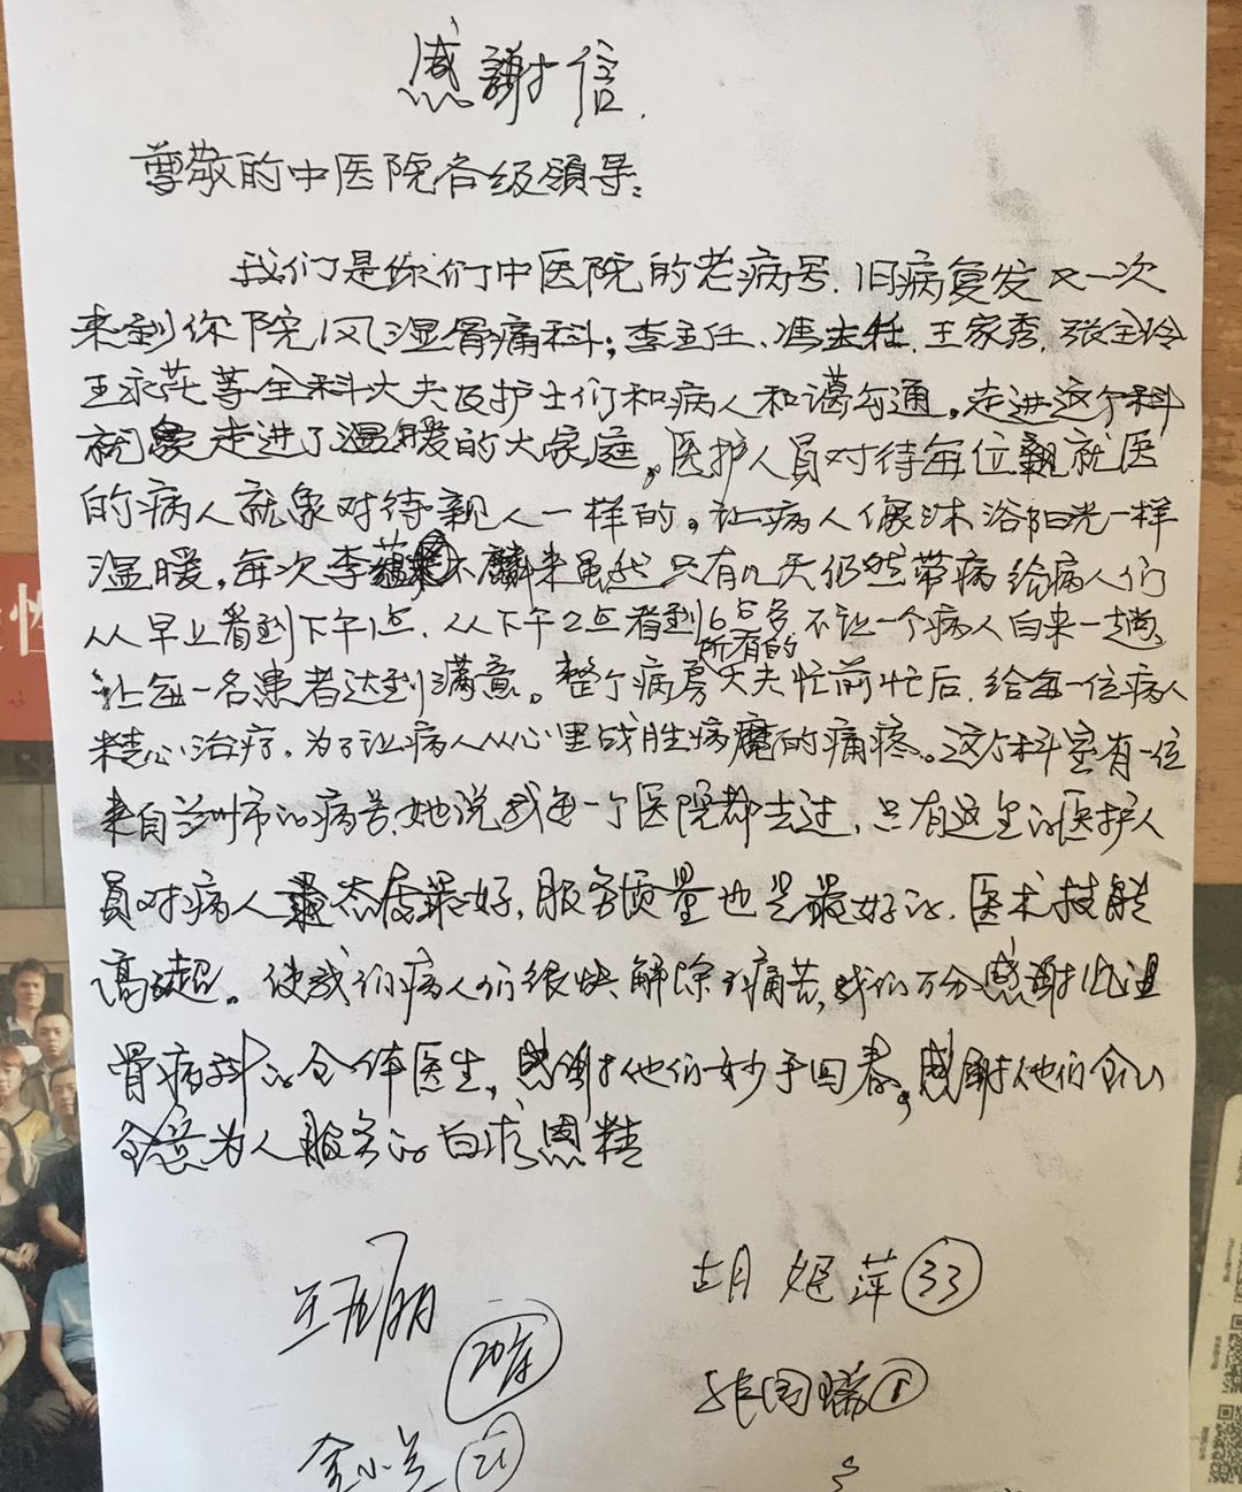 感謝信.
尊敬的中医院各级領导:
我们是你们中医院的老病号.旧病复发又一次
来到你院风湿骨痛科;李主任、馮主任.王家秀.张全玲
王永茫等全科大夫及护士们和病人和谐勾通。走进这个科
就象走进了温暖的大家庭。医护人員对待每位就医
的病人就象对待親人一样的。让病人像沐浴阳光一样
温暖。每次李来虽然只有几天仍然带病给病人们
从早上看到下午1点.从下午2点看到6点多不让一个病人白来一趟。
让每一名患者达到满意。整个病房所有的大夫忙前忙后.给每一位病人
精心治疗.为了让病人从心里战胜病魔的痛疼。这个科室有一位
来自兰州市的病苦.她说我每一个医院都去过,只有这里的医护人
員对病人态度最好,服务质量也是最好的.医术技能
高超。使我们病人们很快解除了痛苦,我们万分感謝风湿
骨病科的全体医生,感謝他们妙手回春,感謝他们全心
全意为人服务的白求恩精
胡姬萍 33
王丽
20床
张国瑞
金小兰 21
性